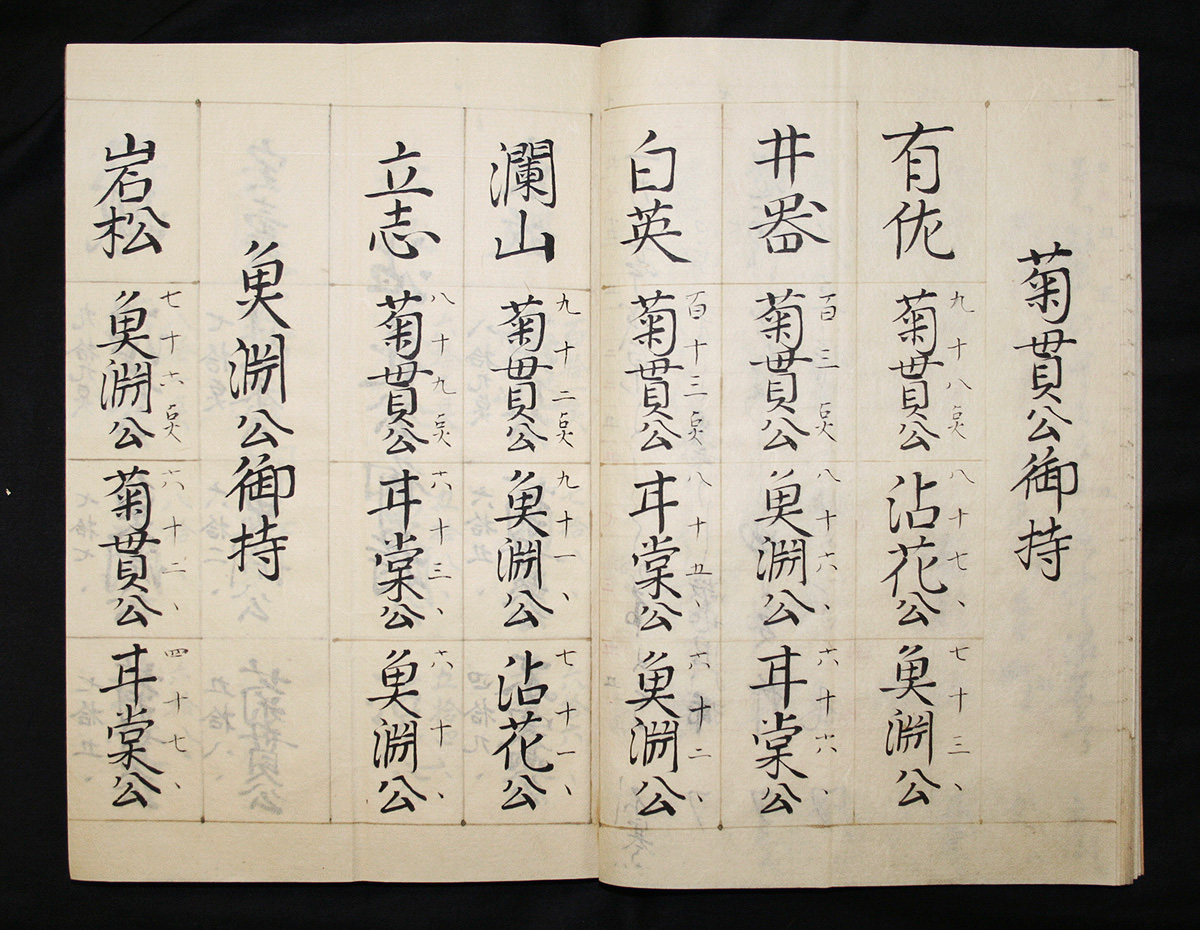 菊貫公御持
有佐
九十八点
菊貫公
八十七、
沾花公
七十三、
魚淵公
井器
百三点
菊貫公
八十六、
魚淵公
六十六、
耳棠公
白英
百十三点
菊貫公
八十五、
耳棠公
六十二、
魚淵公
瀾山
九十二点
菊貫公
九十一、
魚淵公
七十一、
沾花公
立志
八十九点
菊貫公
六十三、
耳棠公
六十、
魚淵公
魚淵公御持
岩松
七十六点
魚淵公
六十二、
菊貫公
四十七、
耳棠公